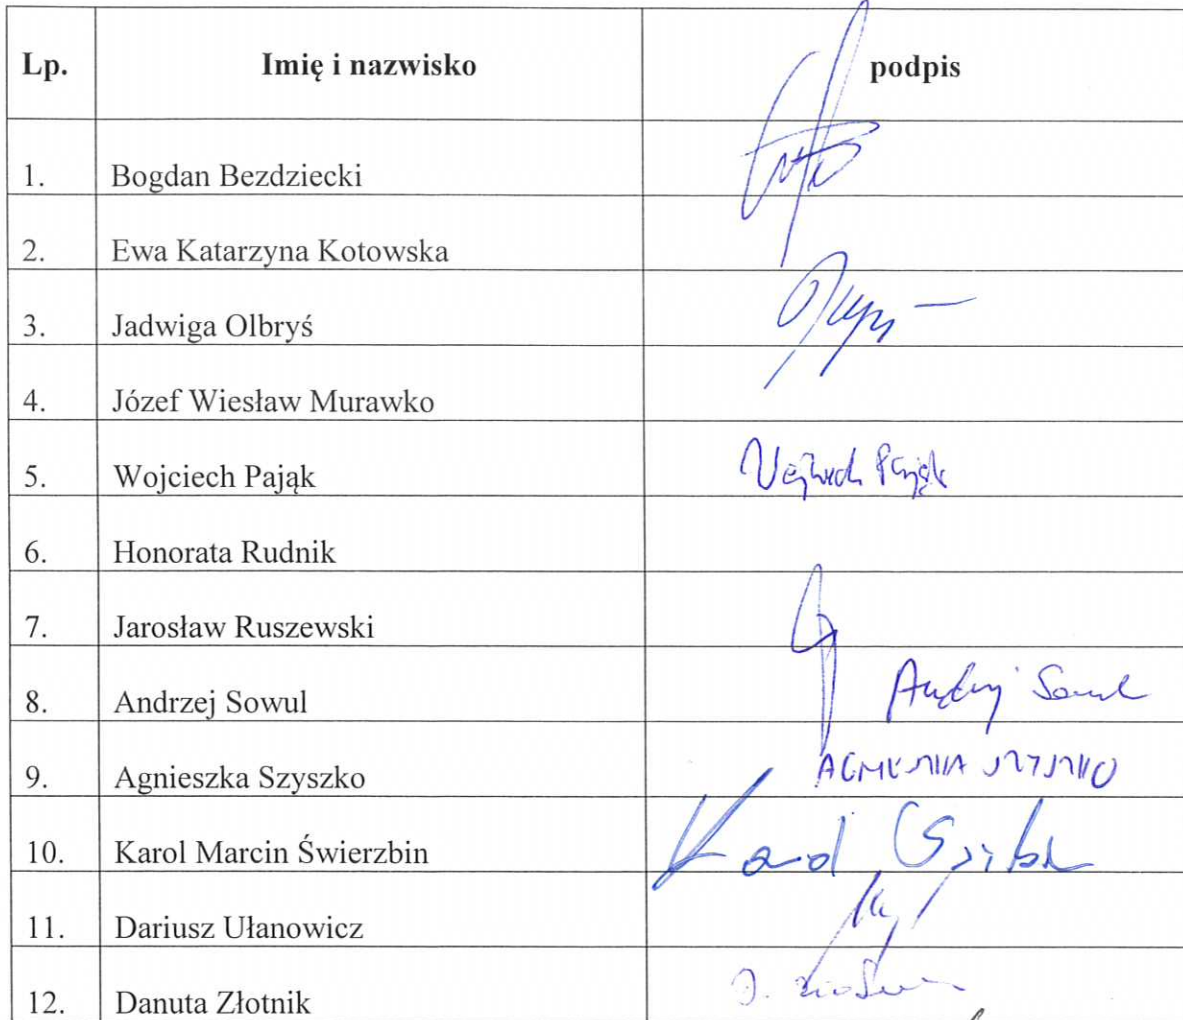 Lp. Imię i nazwisko podpis
1. Bogdan Bezdziecki
2. Ewa Katarzyna Kotowska
3. Jadwiga Olbryś
4. Józef Wiesław Murawko
5. Wojciech Pająk Wojciech Pająk
6. Honorata Rudnik
7. Jarosław Ruszewski
8. Andrzej Sowul Andrzej Sowul
9. Agnieszka Szyszko AGNIESZKA SZYSZKO
10. Karol Marcin Świerzbin Karol
11. Dariusz Ułanowicz
12. Danuta Złotnik D.